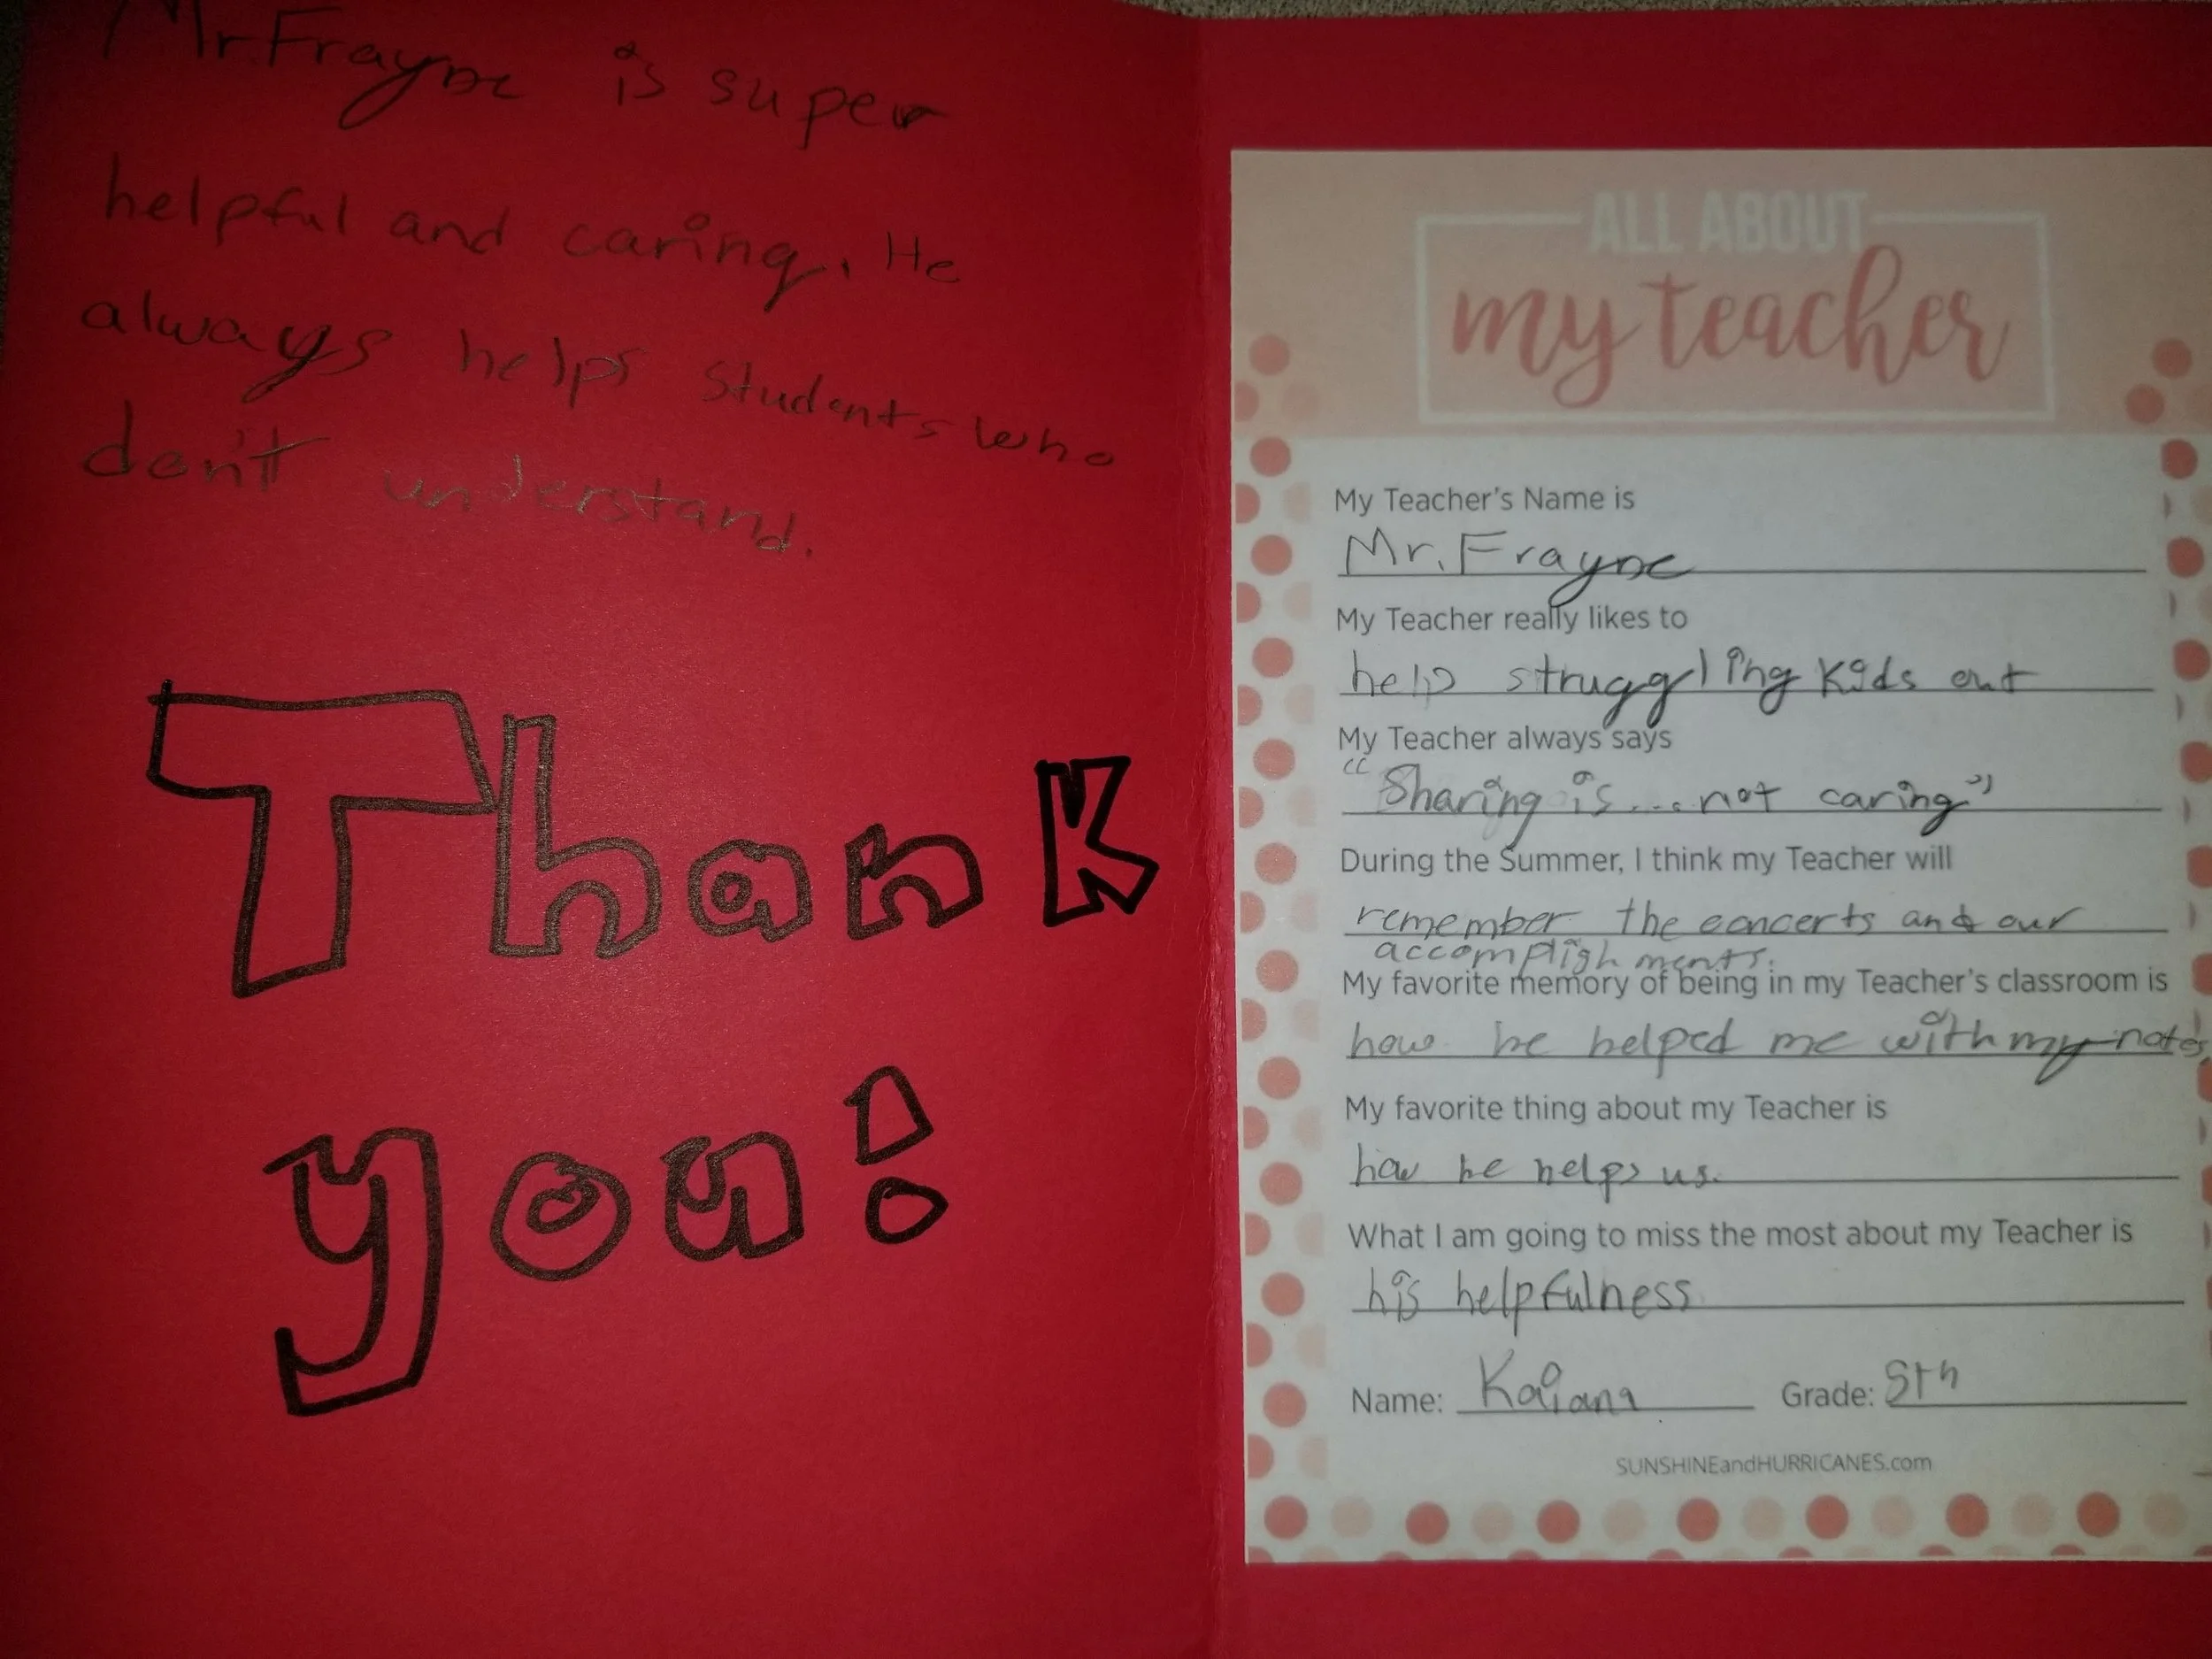 Mr. Frayne is super
helpful and caring. He
always helps students who
don't understand.
Thank
you!
ALL ABOUT
my teacher
My Teacher's Name is
Mr. Frayne
My Teacher really likes to
help struggling kids out
My Teacher always says
"Sharing is....not caring"
During the Summer, I think my Teacher will
remember the concerts and our
accomplishments.
My favorite memory of being in my Teacher's classroom is
how he helped me with my notes
My favorite thing about my Teacher is
how he helps us.
What I am going to miss the most about my Teacher is
his helpfulness
Name: Kaiana Grade: 5th
SUNSHINEandHURRICANES.com